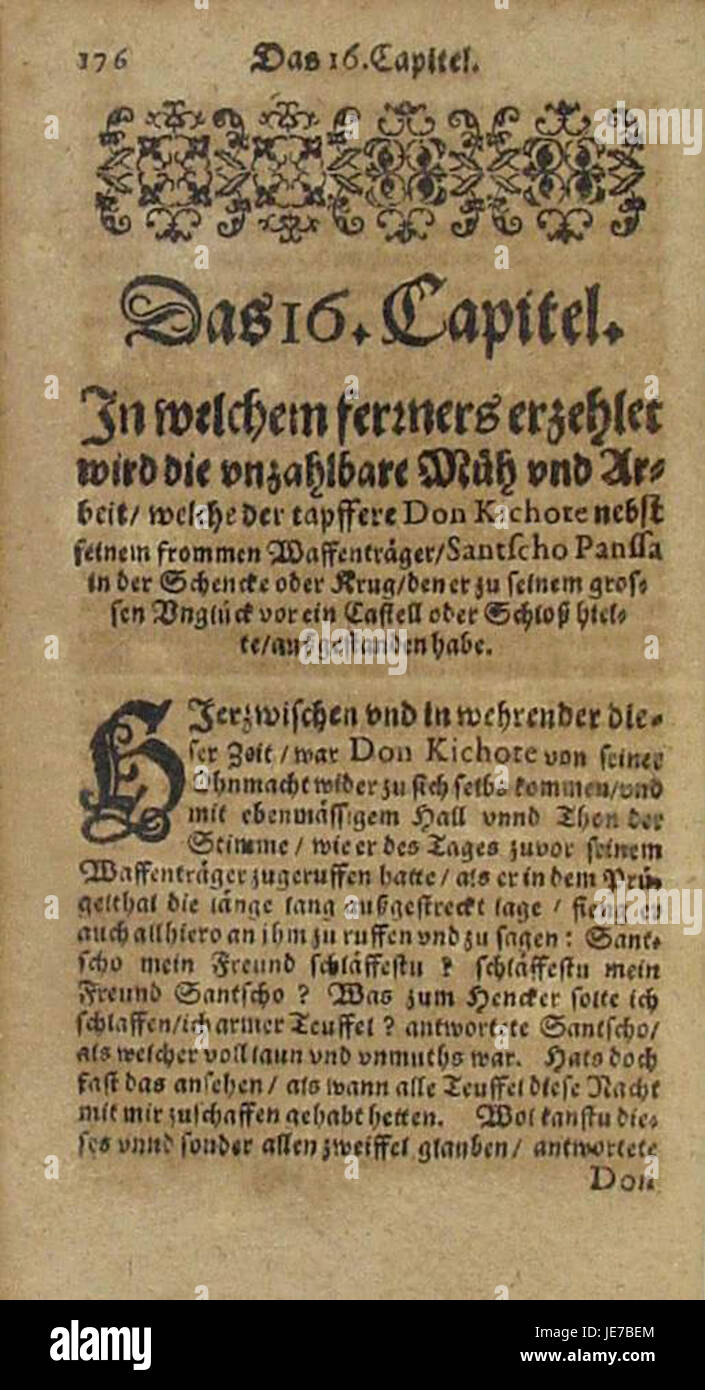 176 Das 16. Capitel.
Das 16. Capitel.
In welchem ferrners erzehlet
wird die vnzahlbare Müh vnd Ar-
beit/ welche der tapffere Don Kichote nebst
seinem frommen Waffenträger/ Santscho Panssa
in der Schencke oder Krug/ den er zu seinem gros-
sen Vnglück vor ein Castell oder Schloß hiel-
te/ außgestanden habe.
HIerzwischen vnd in wehrender die-
ser Zeit/ war Don Kichote von seiner
Ohnmacht wider zu sich selbs kommen/ vnd
mit ebenmässigem Hall vnnd Thon der
Stimme/ wie er des Tages zuvor seinem
Waffenträger zugeruffen hatte/ als er in dem Prü-
gelthal die länge lang außgestreckt lage/ fieng er
auch allhiero an ihm zu ruffen vnd zu sagen: Sant-
scho mein Freund schläffestu? schläffestu mein
Freund Santscho? Was zum Hencker solte ich
schlaffen/ ich armer Teuffel? antwortete Santscho/
als welcher voll laun vnd vnmuths war. Hats doch
fast das ansehen/ als wann alle Teuffel diese Nacht
mit mir zuschaffen gehabt hetten. Wol kanstu die-
ses vnnd sonder allen zweiffel glauben/ antwortete
Don
alamy
Image ID: JE7BEM
www.alamy.com